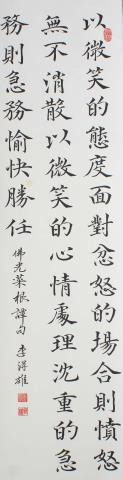 以微笑的態度面對忿怒的場合則憤怒
無不消散以微笑的心情處理沈重的急
務則急務愉快勝任
佛光菜根譚句 李浔雄